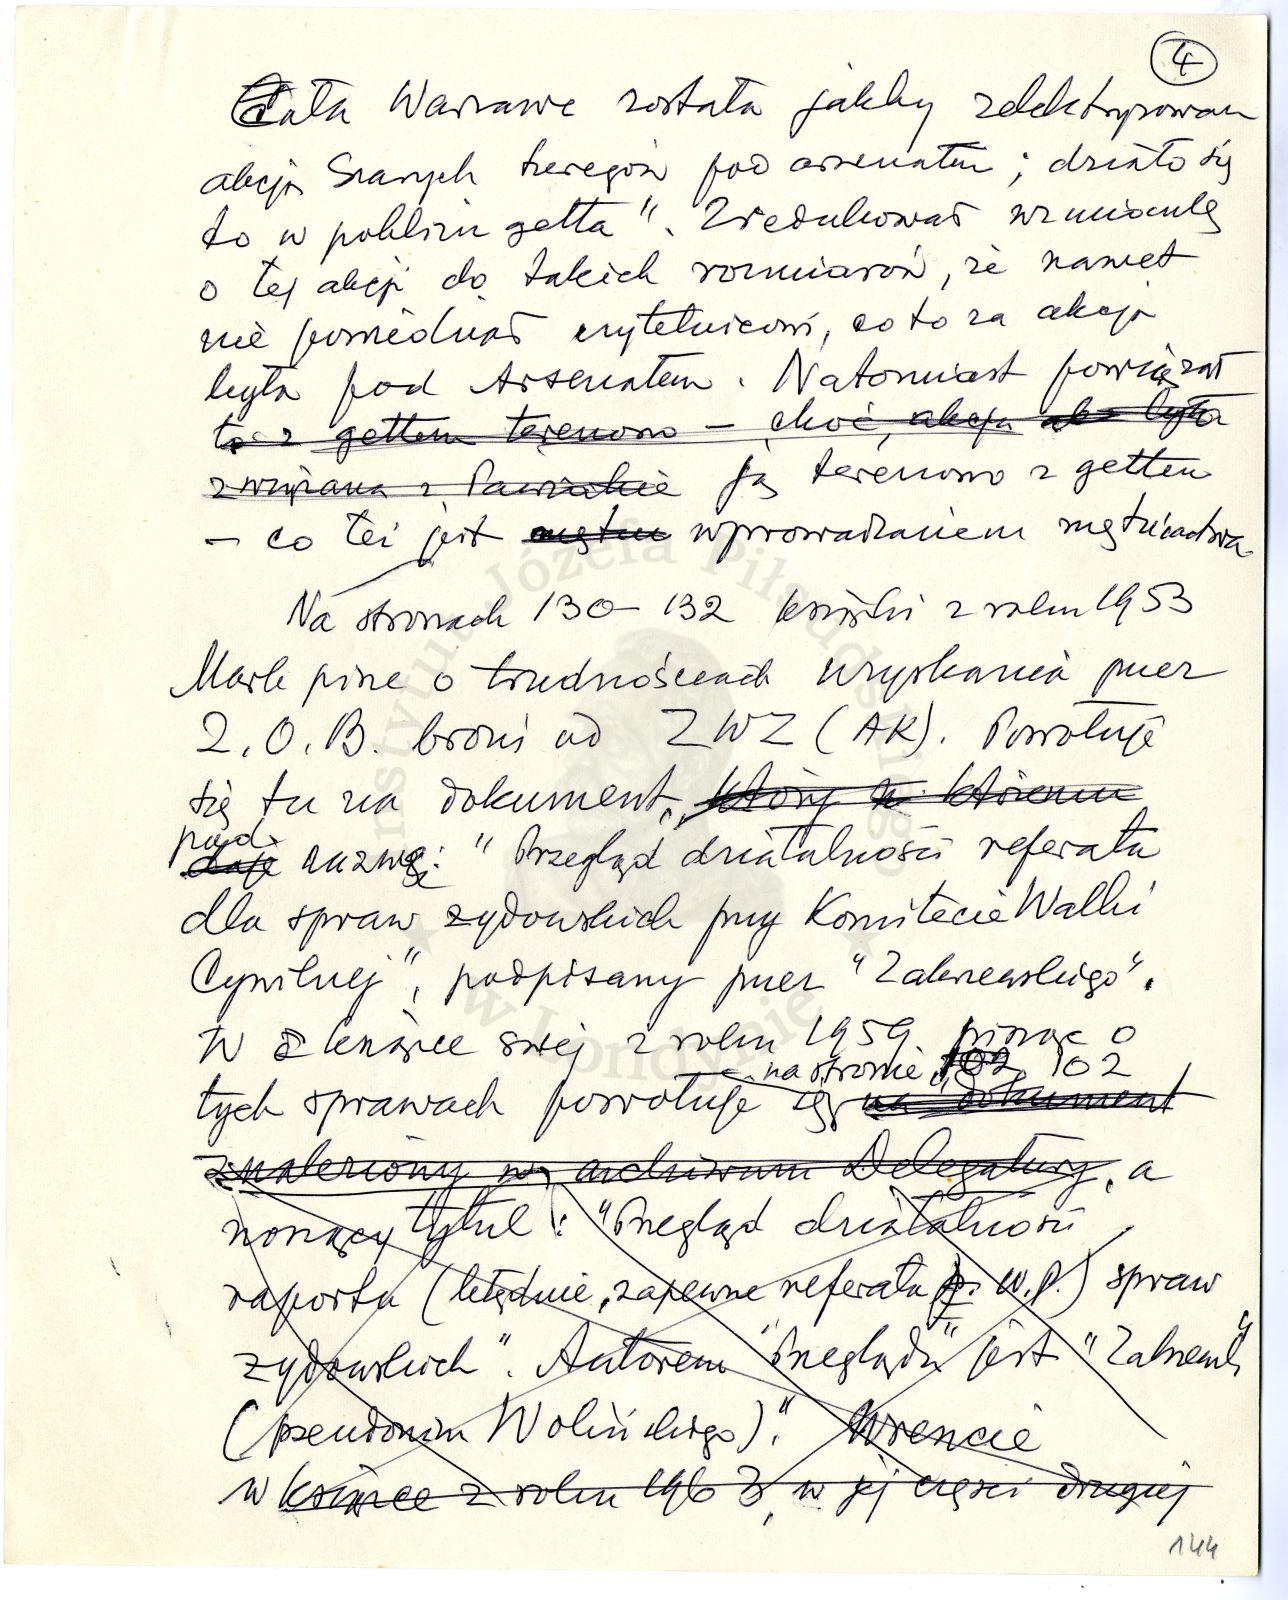 4
Cała Warszawa została jakby zelektryzowan
akcją Szarych Szeregów pod arsenałem; działo się
to w pobliżu getta". Zredukował wzmiankę
o tej akcji do takich rozmiarów, że nawet
nie powiedział czytelnikowi, co to za akcja
była pod Arsenałem. Natomiast powiązał
to z gettem terenowo – choć, akcja była
związana z Pawiakie ją terenowo z gettem
– co też jest wprowadzaniem mętniactwa
Na stronach 130–132 książki z roku 1953
Mark pisze o trudnościach uzyskania przez
Ż.O.B. broni od ZWZ (AK). Powołuje
się tu na dokument, który w którem
pod
daje nazwą: "Przegląd działalności referatu
dla spraw żydowskich przy Komitecie Walki
Cywilnej", podpisany przez "Zakrzewskiego".
W książce swej z roku 1959 pisząc o
na stronie 102 102
tych sprawach powołuje się na dokument
znaleziony w archiwum Delegatury, a
noszący tytuł: "Przegląd działalności
raportu (błędnie, zapewne referatu W.P.) spraw
żydowskich". Autorem "Przeglądu" jest "Zakrzewski"
(pseudonim Wolińskiego)". Wreszcie
w książce z roku 1963, w jej części drugiej
144
Instytut Józefa Piłsudskiego
w Londynie